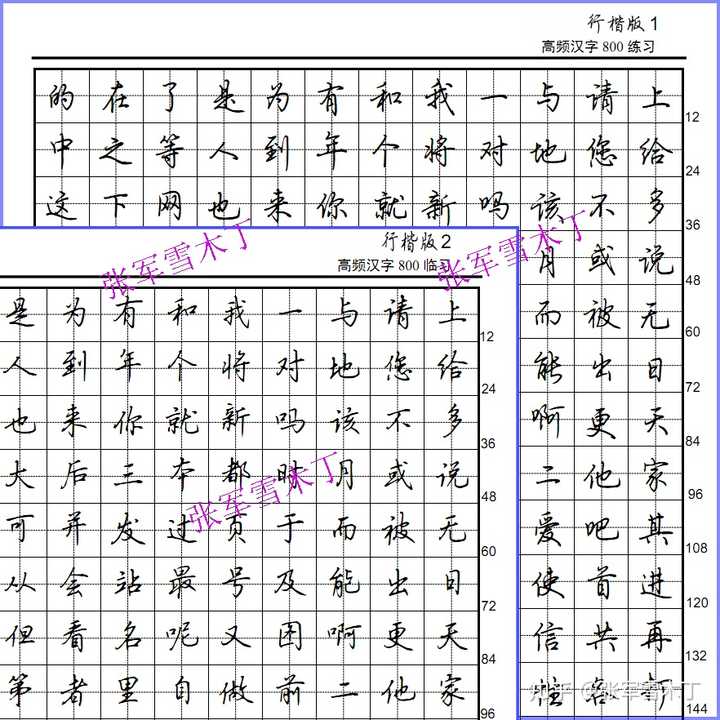 行楷版 1
高频汉字 800 练习
的在了是为有和我一与请上
12
中之等人到年个将对地您给
24
这下网也来你就新吗该不多
36
月或说
48
而被无
60
能出日
72
啊更天
84
二他家
96
爱吧其
108
使首进
120
信共再
132
144
行楷版 2
高频汉字 800 临习
是为有和我一与请上
12
人到年个将对地您给
24
也来你就新吗该不多
36
大后三本都时月或说
48
可并发过页于而被无
60
从会站最号及能出日
72
但看名呢又因啊更天
84
第者里自做前二他家
96
张军雪木丁
张军雪木丁
张军雪木丁
知乎 @张军雪木丁